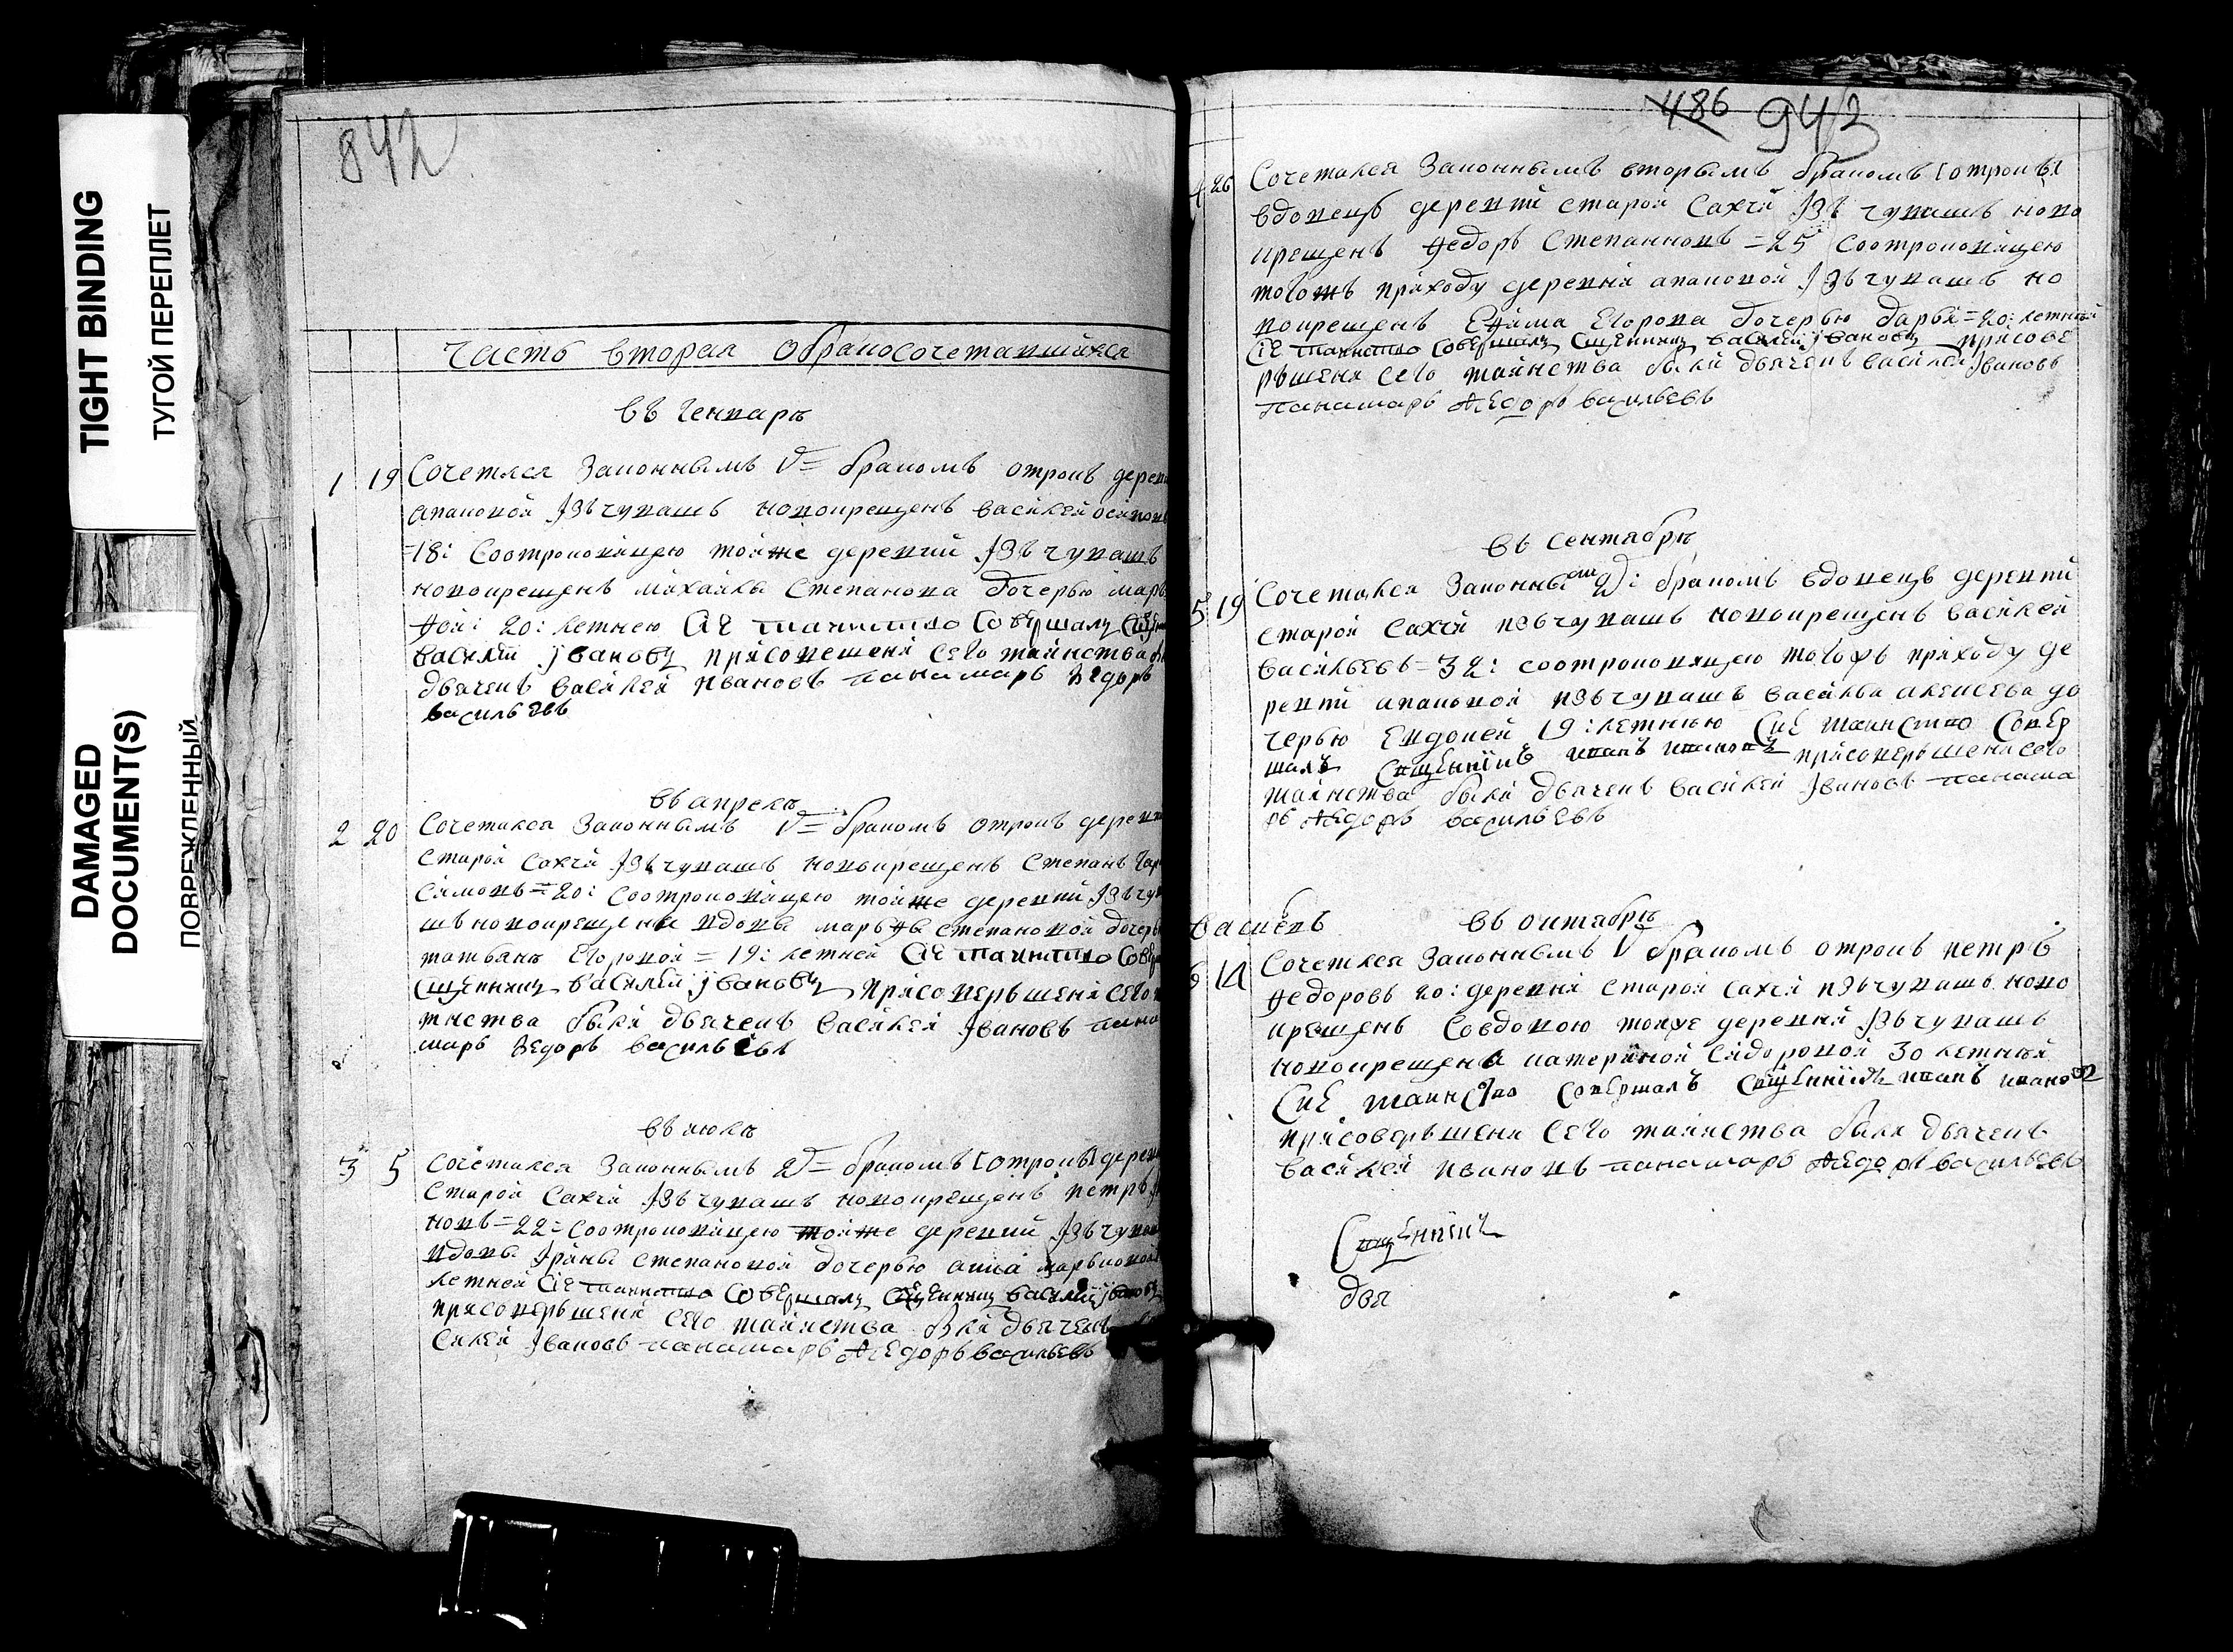 TIGHT BINDING
ТУГОЙ ПЕРЕПЛЕТ
DAMAGED
DOCUMENT(S)
ПОВРЕЖДЕННЫЙ
842
часть вторая обракосочетавшихся
въ генваре
1 19 Сочетлся законнымъ браком отрокъ дерев
апаковой Iзъ чувашъ новокрещенъ василей осипов
=18: Соотроковицею тойже деревни Iзъ чувашъ
новокрещенъ михайлы степанова дочерью мар
фой: 20: летнею Сie таинство Совершалъ
василiй iвановъ присовешени сего таинства
дьячекъ василей ивановъ панамарь федоръ
васильевъ
въ апреле
2 20 Сочетался законнымъ браком отрокъ дерев
старой сахчи Iзъ чувашъ новокрещенъ степанъ
симовъ =20: соотроковицею тойже деревни Iзъ чу
шъ новокрещены вдовы марфы степановой дочерь
татьяне Егоровой =19: летней Сie таинство Сове
Сщенникъ василiй iвановъ присовершени сего
инства были дьячекъ василей Iвановъ пана
марь федоръ васильевъ
въ июле
3 5 сочетался законнымъ 2 браком [отрокъ] дерев
старой сахчи Iзъ чувашъ новокрещенъ петръ
новъ =22= соотроковицею тойже деревни Iзъ чува
вдовы степановой дочерью
летней Сie таинство Совершалъ Сщенникъ василiй iвановъ
присовершени сего таинства были дьячекъ
силей Iвановъ панамарь федоръ васильевъ
486 943
4 26 Сочетался законнымъ вторымъ браком [отрокъ]
вдовецъ деревни старой сахчи Iзъ чувашъ ново
крещенъ федоръ степановъ =25 соотроковицею
тогожъ приходу деревни апаковой Iзъ чувашъ но
вокрещенъ Ефима Егорова дочерью дарьи =20: летней
Сie таинство Совершалъ Сщенникъ василiй iвановъ присове
ршени сего таинства были дьячекъ василей Iвановъ
панамарь федоръ васильевъ
въ сентябре
5 19 Сочетался законным 2: браком вдовецъ деревни
старой сахчи изъ чувашъ новокрещенъ василей
васильевъ =32: соотроковицею тогожъ приходу де
ревни апаковой изъ чувашъ василья алексева до
черью Евдокей 19: летнюю Сие таинство Совер
шалъ Сщенникъ иванъ ивановъ присовершени сего
таинства были дьячекъ василей Iвановъ панама
рь федоръ васильевъ
въ октябре
6 Сочетлся законнымъ браком отрокъ петръ
федоровъ 20: деревни старой сахчи изъ чувашъ ново
крещенъ Совдовою тояже деревни Iзъ чувашъ
новокрещена катериной сидоровой 30 летней
Сие таинство Совершалъ Сщенникъ иванъ ивановъ
присовершени сего таинства были дьячекъ
василей ивановъ панамарь федоръ васильевъ
Сщенникъ
дья